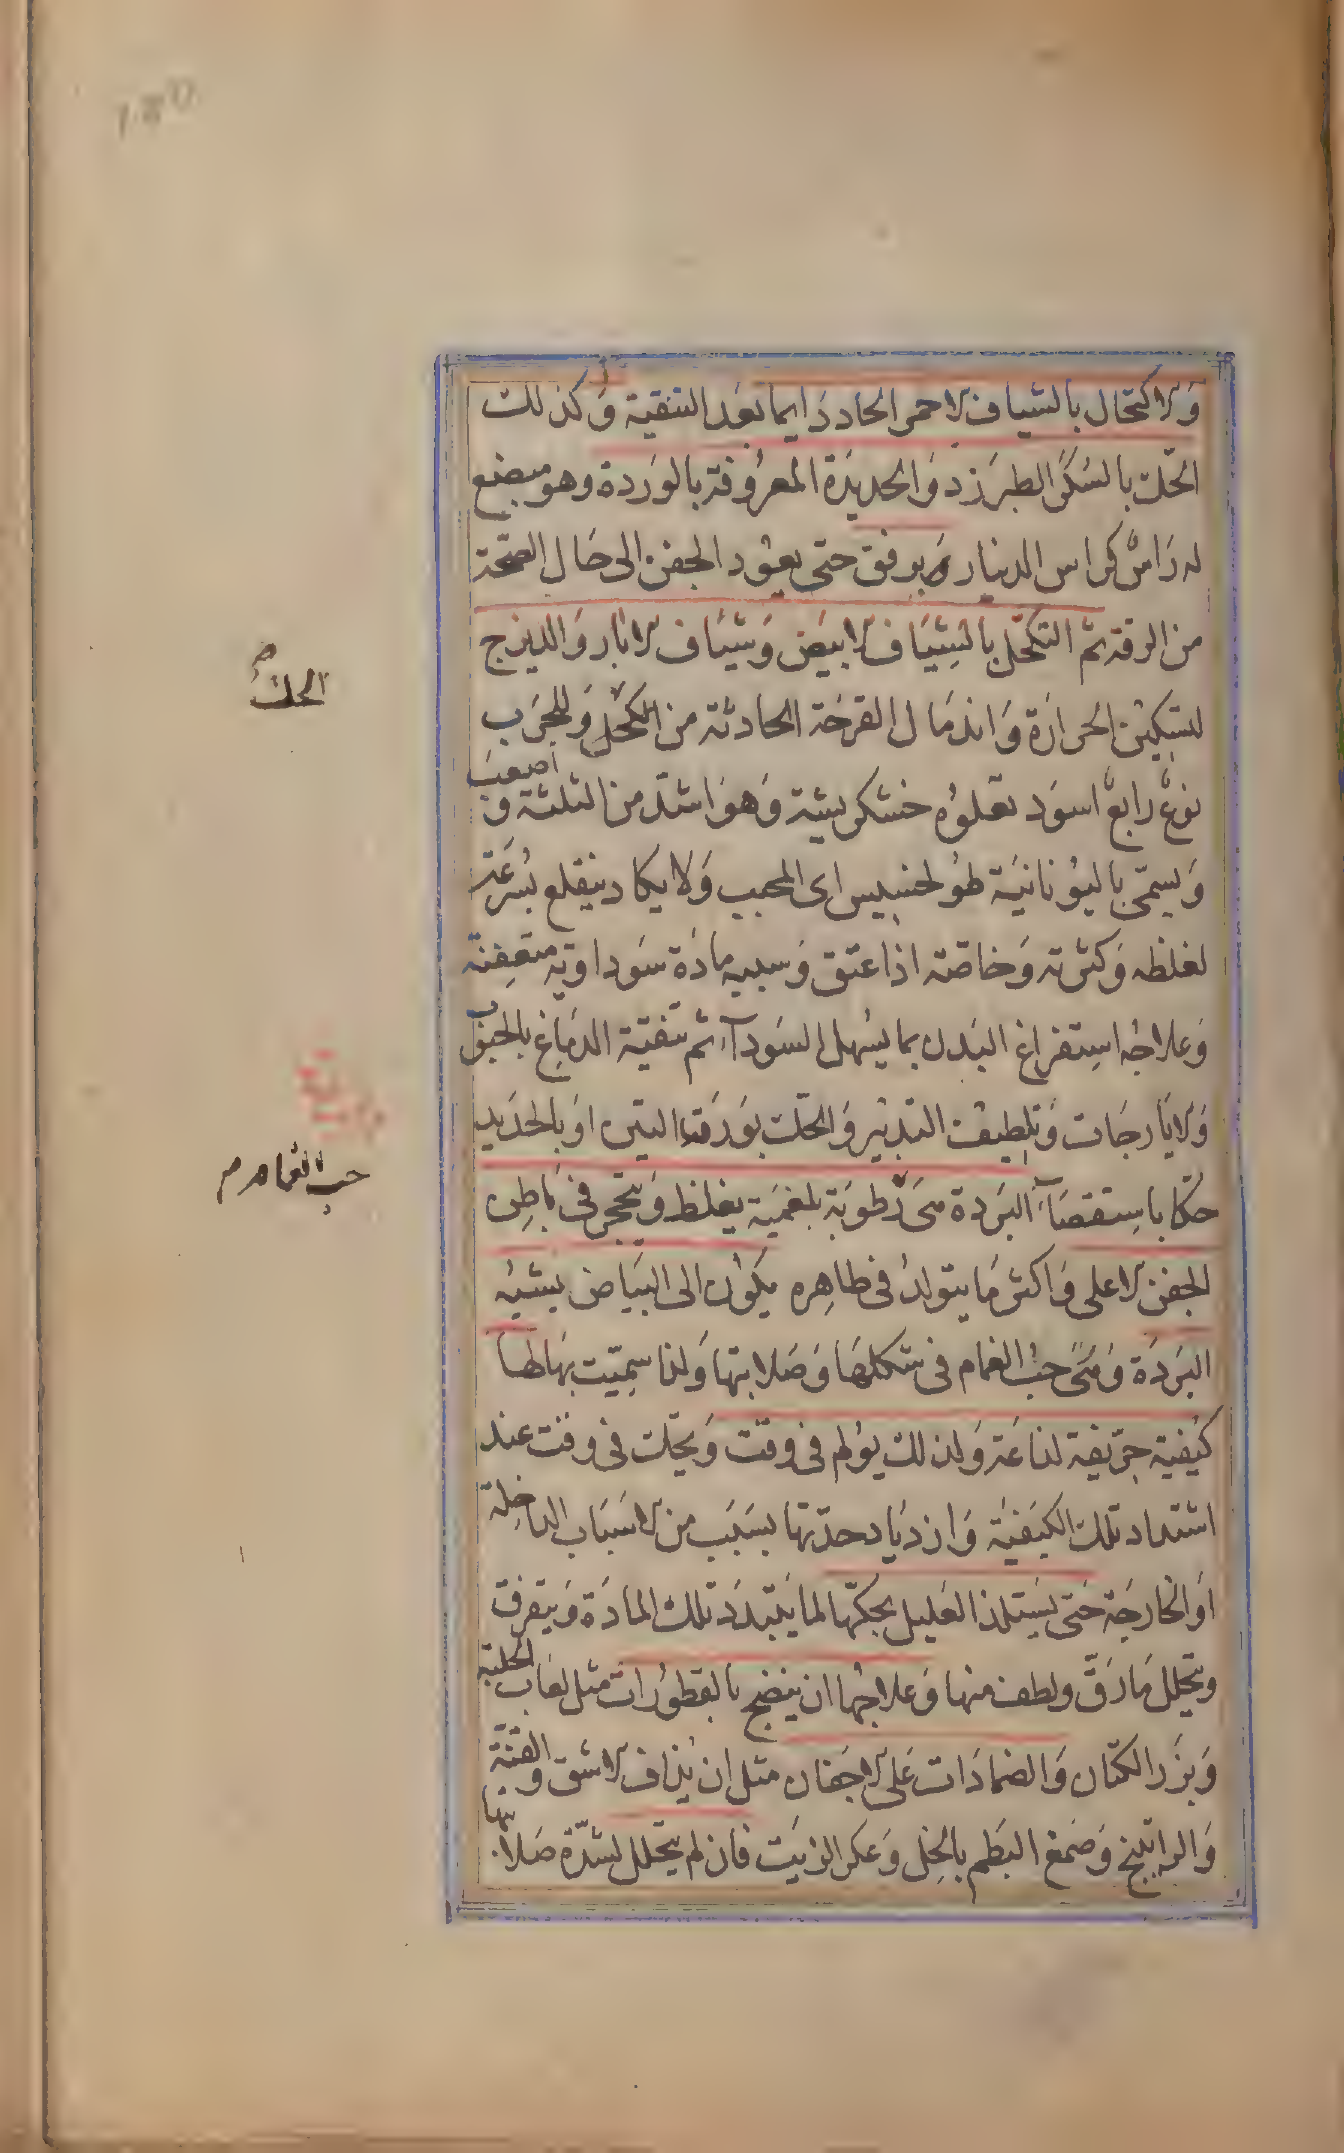 وَالاكتحال بالشياف الاحمر الحاد دَايما بَعَد التنقية وَكذلك
الحَك بالسُكَر الطبرَزد وَالحديدَة المعرُوفة بالوَردة وهو مبضع
له رَاسٌ كراس الدينار وَبرفق حتى يعوُد الجفن الى حَال الصّحة
من الرقة ثمّ التكحّل بالشِيَاف الابيَض وَشيَاف الابار وَالديزج
لتسكيُن الحرارَة وَاندمَال القرحَة الحادثة من الكحل وَللجَرَب
نوعٌ رابعٌ اسوَد تعلوُه خشكريشة وَهوَ اشدّ من الثلثة وَ اصعبَ
وَيسمّى باليُونانيَة طوُ اى المحبب وَلا يكاد ينقلع بسُرعَة
لغلظه وَكثرته وَخاصّة اذا عتق وَسببه مادَة سَوداويّه متعِفنة
وَعلاجُه اسِتفراغ البَدن بما يسُهل السَودآء ثم تنقية الدمَاغ بالحبُوب
وَالايَارجَات وَتلطيف التدبيُر وَالحكّ بوَرَقة التين اوَ بالحَديد
حكّا باسِتقصَآء البَرَدة هىَ رُطوبَة بلغميَة يغلظ وَيتحجر فى بَاطِن
الجفن الاعلى وَاكثر مَا يتولدُ فى ظاهِره يكوُن الى البيَاض يشبُه
البَردَة وَهىَ حبّ الغمام فى شكلهَا وَصَلابتها وَلذا سِميّت بهَا لها
كيُفية حرّيفة لذاعَة وَلذلك يؤلم فى وقت وَيحّك فى وقت عند
اشتداد تلك الكيَفيَة وَازديَاد حدّتها بسَبَب من الاسَبَاب الداخِلة
اوَ الخارجَة حَتى يَستلذ العَليل بحكّها لما يَتَبدّدَ تلك المادَة وَيتفرق
ويتحلل مَا رَقّ ولطف منها وَعلاجُها ان ينضج بالقطوُرات مثل لعَاب الحلبَة
وَبزَر الكتان وَالضمادَات عَلى الاجَفان مثل ان يُذاف الاشق والقنّة
وَالراتينج وَصَمغ البَطم بالخِل وَعكر الزيَت فان لم يتحلل لشدّة صَلابتها
الحك
حب الغمام